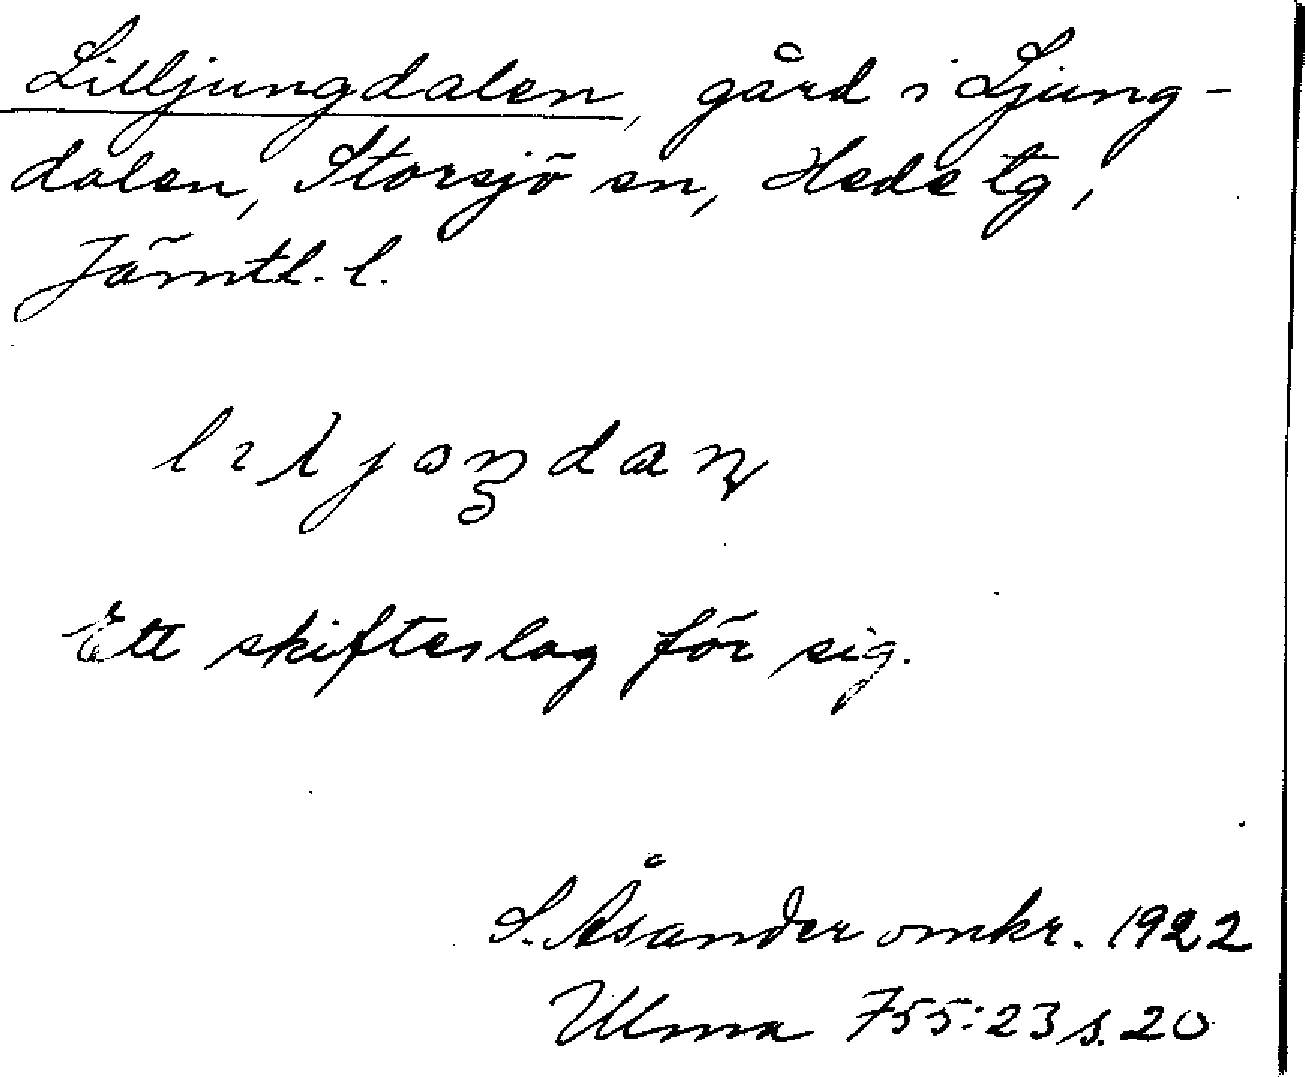 Lilljungdalen, gård i Ljung-
dalen, Storsjö sn, Hede tg,
Jämtl. l.
Ett skifteslag för sig.
S. Åsander omkr. 1922
Ulma 755:23 s. 20